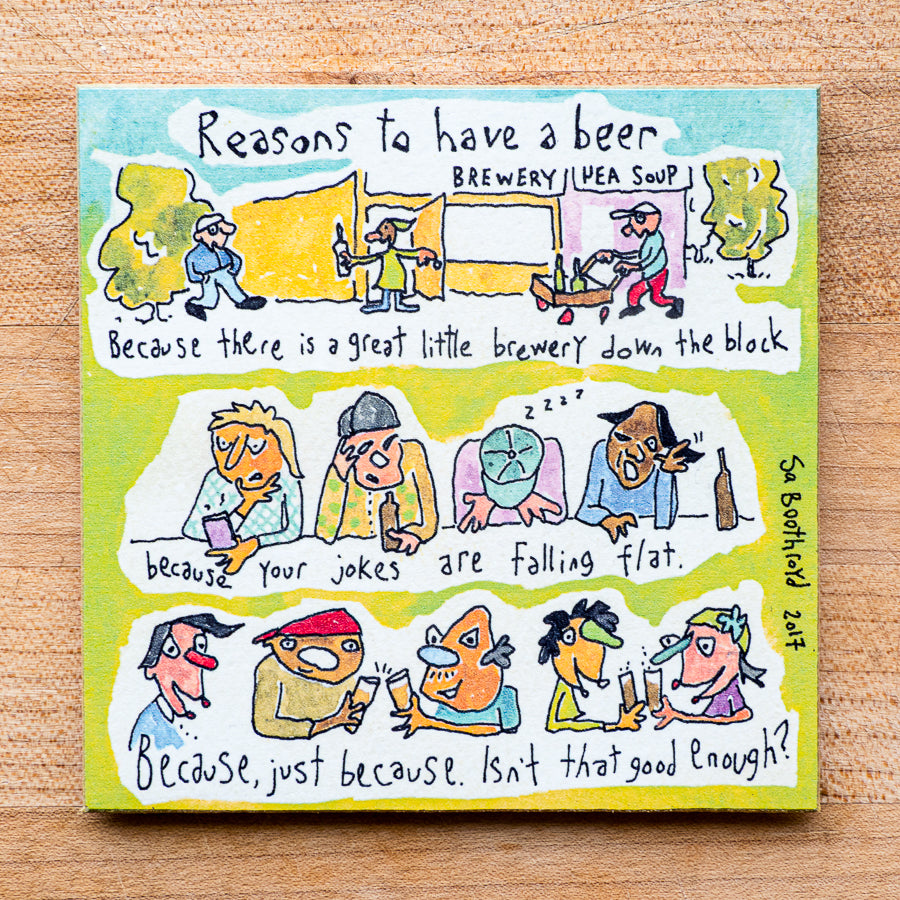 Reasons to have a beer
BREWERY HEA SOUP
Because there is a great little brewery down the block
z z z z
because your jokes are falling flat.
Because, just because. Isn't that good enough?
Sa Boothroyd 2017